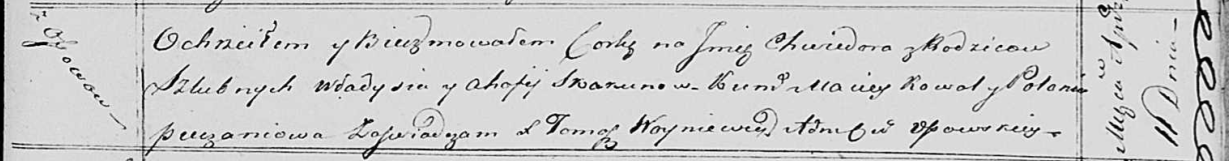 z Osowa
Ochrzciłem y Bierzmowałem Corkę na Jmię Chwiedora z Rodzicow
Szlubnych Władysia y Ahafij Skakunow. Kumˀ Maciey Kowal y Polonia
Zaswiadczam X Tomasz Woyniewicz Adm C
Mżca Apr
11 Dnia